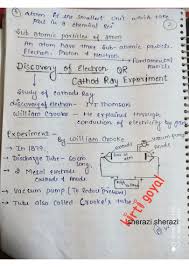 Atom is the smallest unit which take
Part in a chemical rxn
Sub atomic particles of atom
An atom have three sub-atomic particles.
Electron, Proton & Neutron.
Fundamental Particle
Discovery of Electron OR
Cathod Ray Experiment
Study of cathode Ray
discovery of electron - JJ Thomson
William Crooke - He explained through
conduction of electricity by gas
Experiment - By William Crooke
In 1879,
Discharge Tube - 60cm long
2 Metal electrode
Cathode & Anode
Vacuum pump (To Reduce Pressure)
Tube also called Crooke's tube
Kirti goyal
sherazi.sherazi